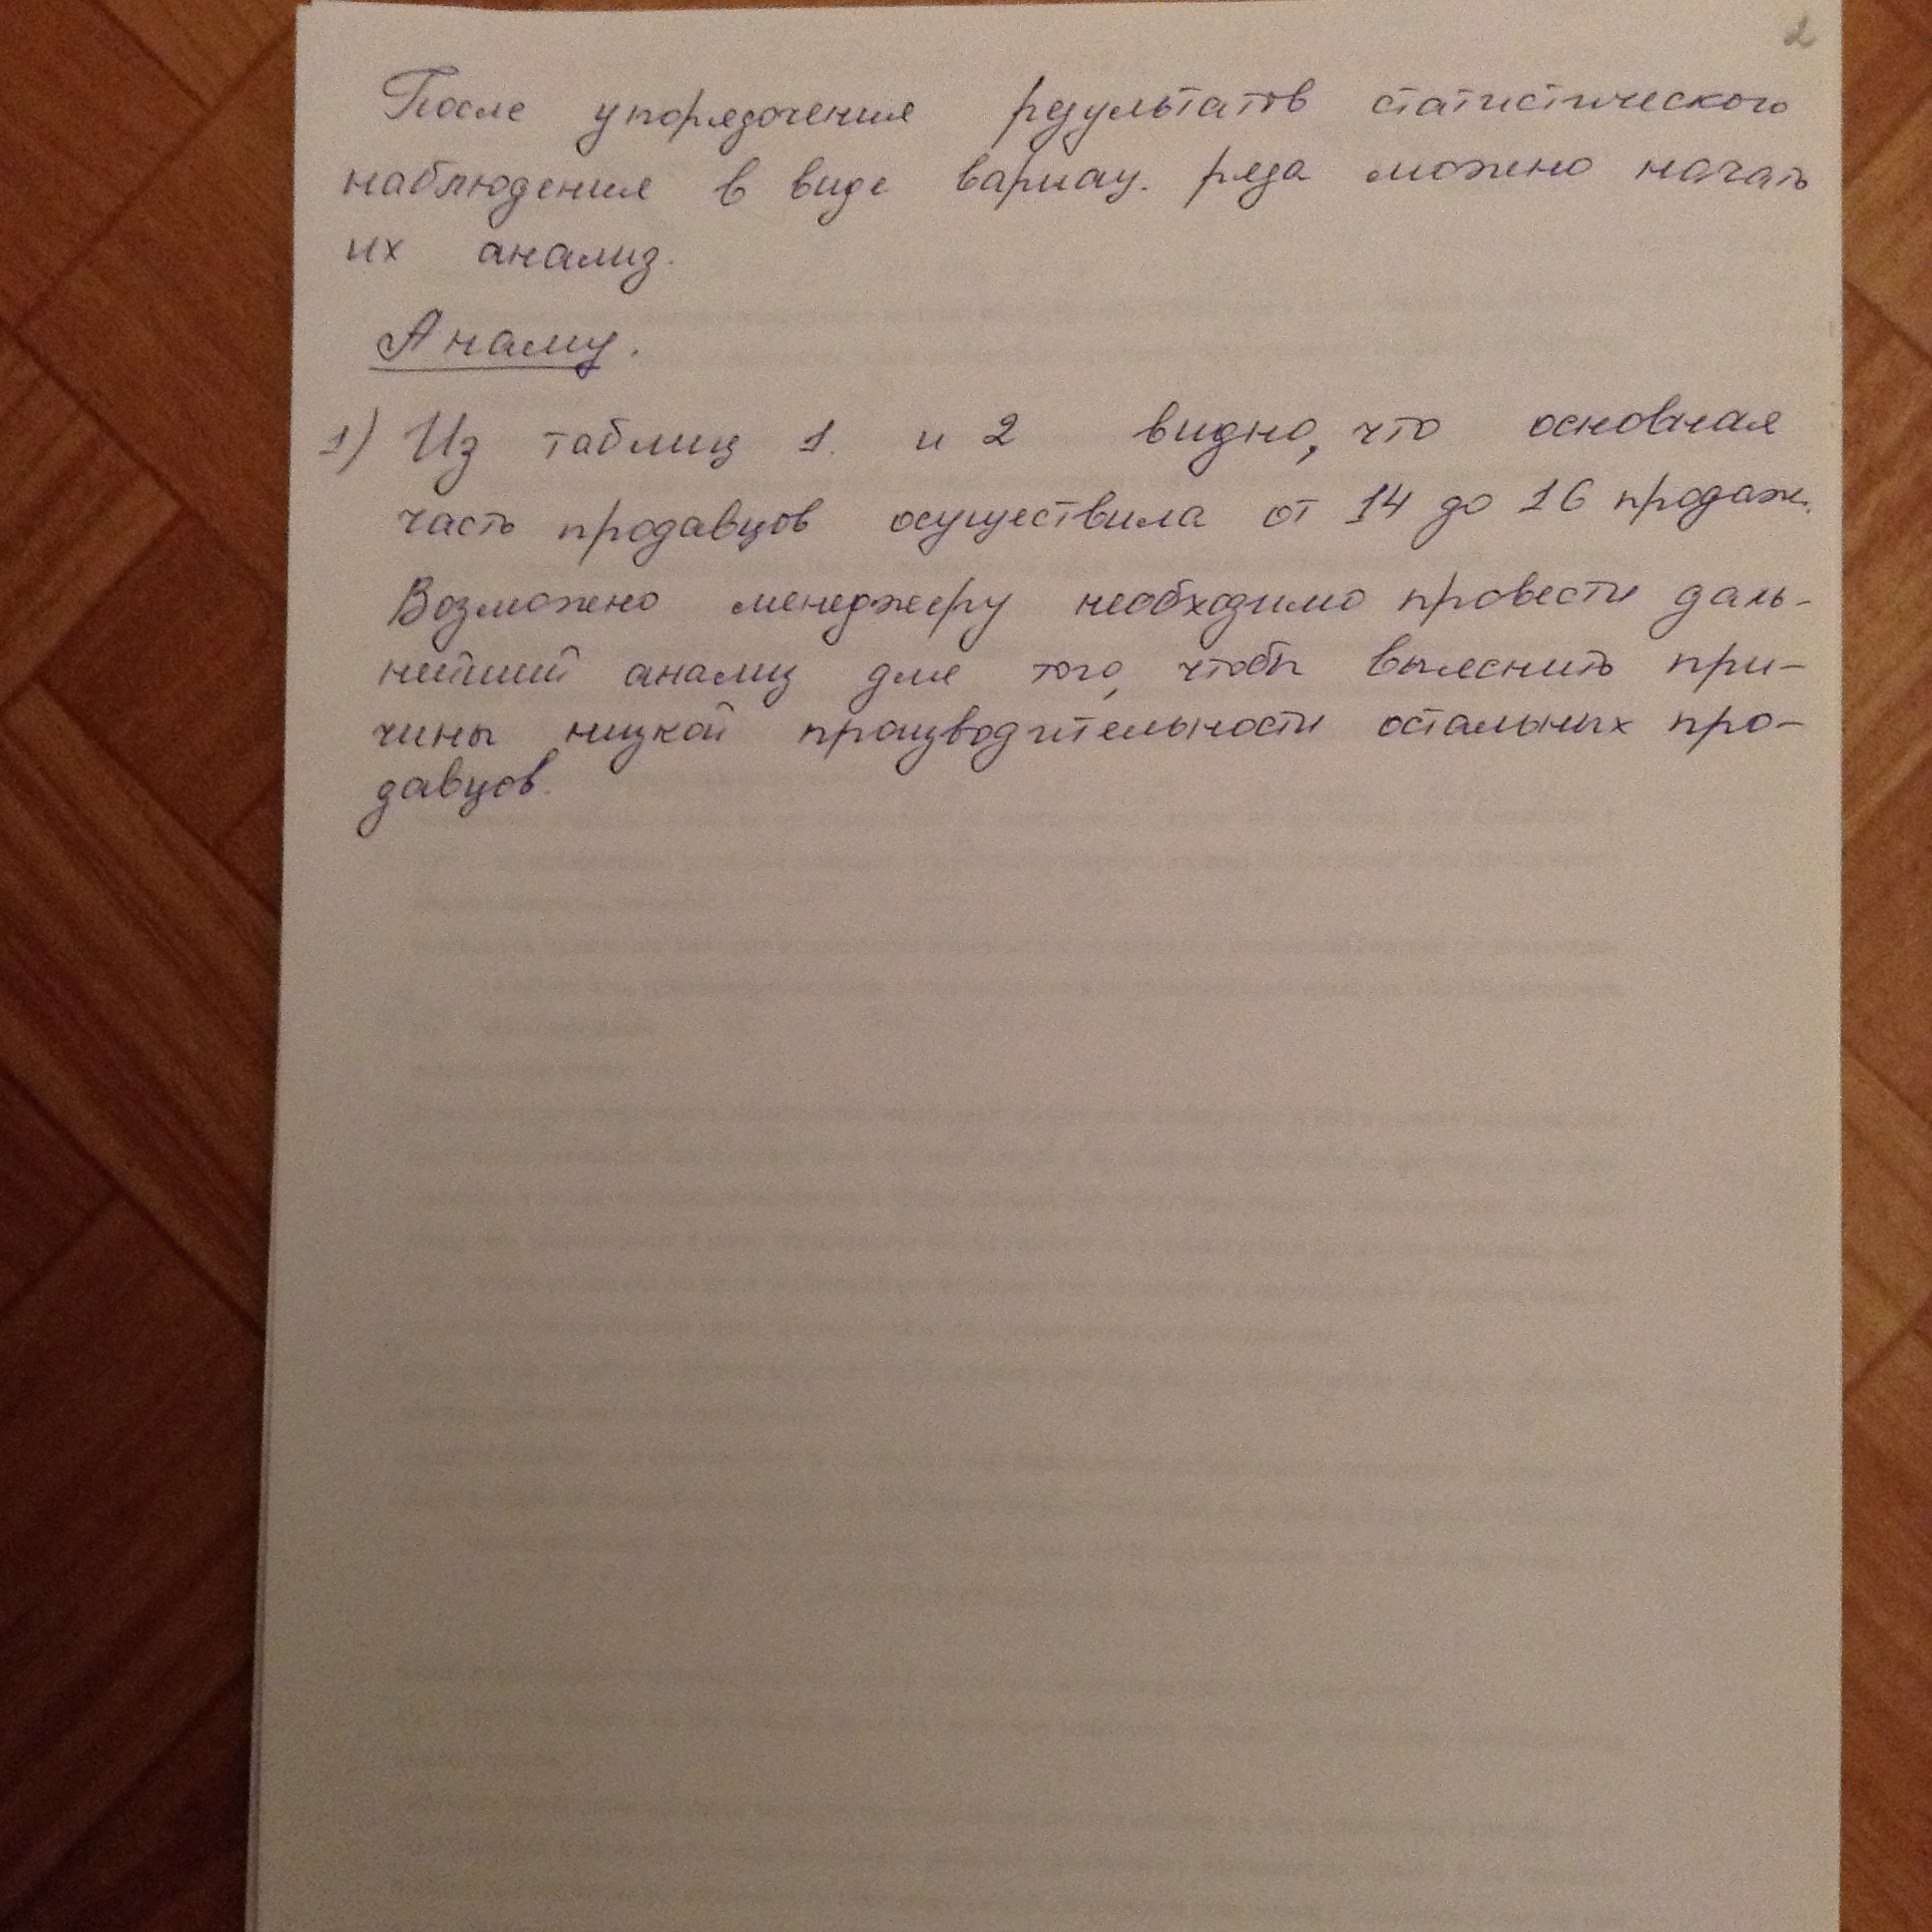 2
После упорядочения результатов статистического
наблюдения в виде вариац. ряда можно начать
их анализ.
Анализ.
1) Из таблиц 1. и 2 видно, что основная
часть продавцов осуществила от 14 до 16 продаж.
Возможно менеджеру необходимо провести даль-
нейший анализ для того, чтобы выяснить при-
чины низкой производительности остальных про-
давцов.